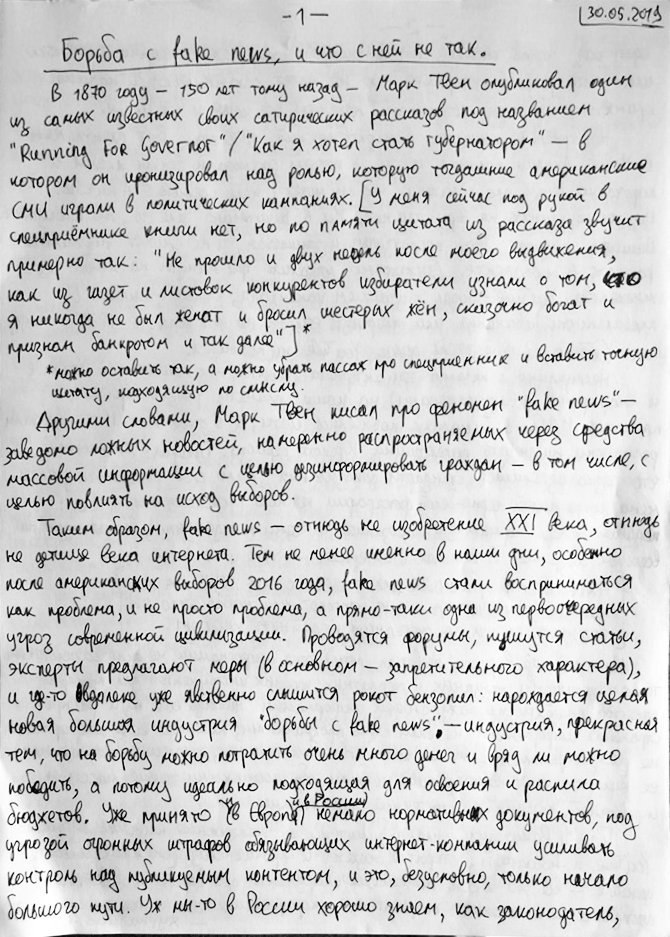 -1-
30.05.2019
Борьба с fake news, и что с ней не так.
В 1870 году - 150 лет тому назад - Марк Твен опубликовал один
из самых известных своих сатирических рассказов под названием
"Running For Governor"/"Как я хотел стать губернатором" - в
котором он иронизировал над ролью, которую тогдашние американские
СМИ играли в политических кампаниях. [У меня сейчас под рукой в
спецприёмнике книги нет, но по памяти цитата из рассказа звучит
примерно так: "Не прошло и двух недель после моего выдвижения,
как из газет и листовок конкурентов избиратели узнали о том, что
я никогда не был женат и бросил шестерых жён, сказочно богат и
признан банкротом и так далее"]*
*можно оставить так, а можно убрать пассаж про спецприемник и вставить точную
цитату, подходящую по смыслу.
Другими словами, Марк Твен писал про феномен "fake news" -
заведомо ложных новостей, намеренно распространяемых через средства
массовой информации с целью дезинформировать граждан - в том числе, с
целью повлиять на исход выборов.
Таким образом, fake news - отнюдь не изобретение XXI века, отнюдь
не детище века интернета. Тем не менее именно в наши дни, особенно
после американских выборов 2016 года, fake news стали восприниматься
как проблема, и не просто проблема, а прямо-таки одна из первоочередных
угроз современной цивилизации. Проводятся форумы, пишутся статьи,
эксперты предлагают меры (в основном - запретительного характера),
и где-то вдалеке уже явственно слышится рокот бензопил: нарождается целая
новая большая индустрия "борьбы с fake news", - индустрия, прекрасная
тем, что на борьбу можно потратить очень много денег и вряд ли можно
победить, а потому идеально подходящая для освоения и распила
бюджетов. Уже принято (и в Европе, и в России) немало нормативных документов, под
угрозой огромных штрафов обязывающих интернет-компании усиливать
контроль над публикуемым контентом, и это, безусловно, только начало
большого пути. Уж мы-то в России хорошо знаем, как законодатель,